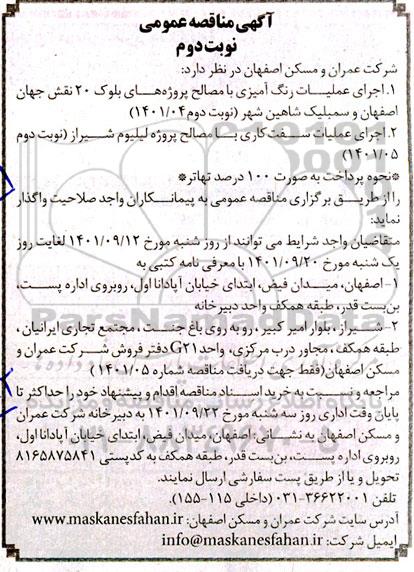 آگهی مناقصه عمومی
نوبت دوم
شرکت عمران و مسکن اصفهان در نظر دارد:
۱.اجرای عملیـات رنگ آمیزی با مصالح پروژه‌های بلوک ۲۰ نقش جهان
اصفهان و سمبلیک شاهین شهر (نوبت دوم ۱۴۰۱/۰۴)
۲.اجرای عملیات سفت‌کاری با مصالح پروژه لیلیوم شیراز (نوبت دوم
۱۴۰۱/۰۵)
*نحوه پرداخت به صورت ۱۰۰ درصد تهاتر*
را از طریق برگزاری مناقصه عمومی به پیمانکاران واجد صلاحیت واگذار
نماید:
متقاضیان واجد شرایط می توانند از روز شنبه مورخ ۱۴۰۱/۰۹/۱۲ لغایت روز
یک شنبه مورخ ۱۴۰۱/۰۹/۲۰ با معرفی نامه کتبی به
۱-اصفهان، میدان فیض، ابتدای خیابان آپادانا اول، روبروی اداره پست،
بن‌بست قدر، طبقه همکف واحد دبیرخانه
۲-شیراز، بلوار امیر کبیر، رو به روی باغ جنت، مجتمع تجاری ایرانیان،
طبقه همکف، مجاور درب مرکزی، واحد G21 دفتر فروش شرکت عمران و
مسکن اصفهان (فقط جهت دریافت مناقصه شماره ۱۴۰۱/۰۵)
مراجعه و نسبت به خرید اسناد مناقصه اقدام و پیشنهاد خود را حداکثر تا
پایان وقت اداری روز سه شنبه مورخ ۱۴۰۱/۰۹/۲۲ به دبیرخانه شرکت عمران
و مسکن اصفهان به نشانی: اصفهان، میدان فیض، ابتدای خیابان آپادانا اول،
روبروی اداره پست، بن‌بست قدر، طبقه همکف به کدپستی ۸۱۶۵۸۷۵۸۴۱
تحویل و یا از طریق پست سفارشی ارسال نمایند.
تلفن ۳۶۶۲۲۰۰۱-۰۳۱ (داخلی ۱۱۵-۱۵۵).
آدرس سایت شرکت عمران و مسکن اصفهان: www.maskanesfahan.ir
ایمیل شرکت: info@maskanesfahan.ir